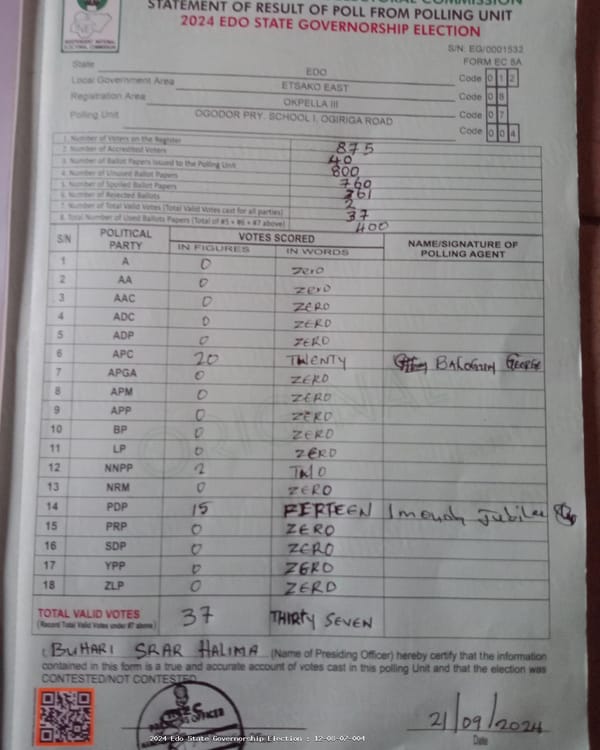 STATEMENT OF RESULT OF POLL FROM POLLING UNIT
2024 EDO STATE GOVERNORSHIP ELECTION
S/N: EG/0001532
FORM EC 8A
INDEPENDENT NATIONAL ELECTORAL COMMISSION
State EDO Code 0 1 2
Local Government Area ETSAKO EAST Code 0 8
Registration Area OKPELLA III Code 0 7
Polling Unit OGODOR PRY. SCHOOL I, OGIRIGA ROAD Code 0 0 4
1. Number of Voters on the Register 875
2. Number of Accredited Voters 40
3. Number of Ballot Papers Issued to the Polling Unit 800
4. Number of Unused Ballot Papers 760
5. Number of Spoiled Ballot Papers 361
6. Number of Rejected Ballots 2
7. Number of Total Valid Votes (Total Valid Votes cast for all parties) 37
8. Total Number of Used Ballots Papers (Total of #5 + #6 + #7 above) 400
S/N POLITICAL PARTY VOTES SCORED NAME/SIGNATURE OF POLLING AGENT
IN FIGURES IN WORDS
1 A 0 zero
2 AA 0 zero
3 AAC 0 ZERO
4 ADC 0 ZERO
5 ADP 0 ZERO
6 APC 20 TWENTY BALOGUN GEORGE
7 APGA 0 ZERO
8 APM 0 ZERO
9 APP 0 ZERO
10 BP 0 ZERO
11 LP 0 ZERO
12 NNPP 2 TWO
13 NRM 0 ZERO
14 PDP 15 FIRTEEN Jubilee
15 PRP 0 ZERO
16 SDP 0 ZERO
17 YPP 0 ZERO
18 ZLP 0 ZERO
TOTAL VALID VOTES 37 THIRTY SEVEN
(Record Total Valid Votes under #7 above)
I BUHARI SRAR HALIMA (Name of Presiding Officer) hereby certify that the information
contained in this form is a true and accurate account of votes cast in this polling Unit and that the election was
CONTESTED/NOT CONTESTED
21/09/2024
Date
2024 Edo State Governorship Election : 12-08-07-004